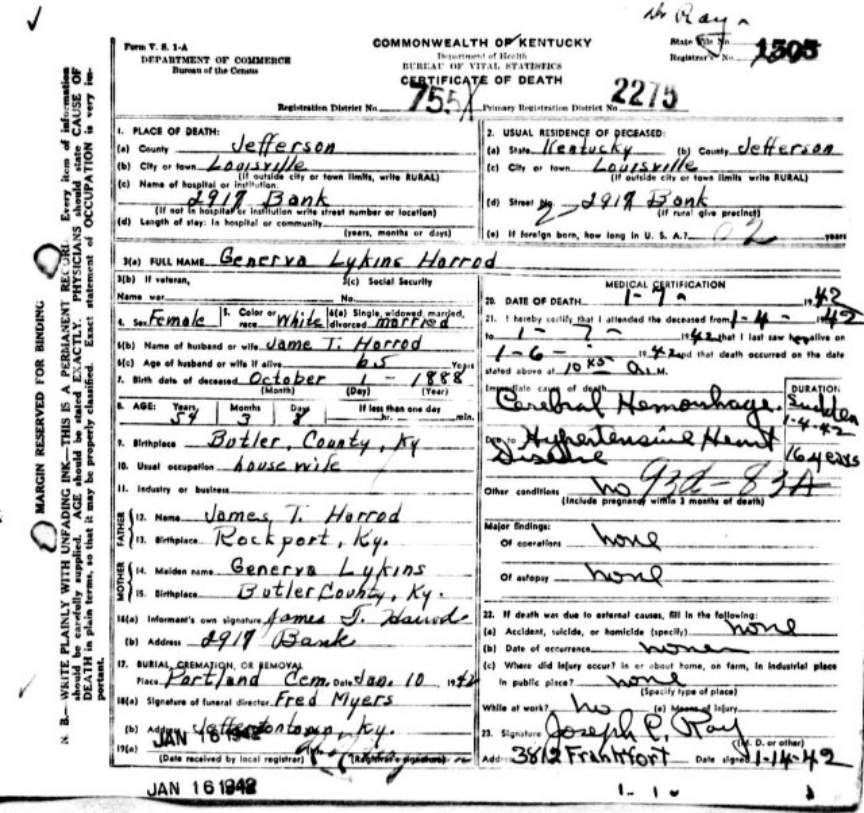 Dr Ray
Form V. S. 1-A
DEPARTMENT OF COMMERCE
Bureau of the Census
COMMONWEALTH OF KENTUCKY
Department of Health
BUREAU OF VITAL STATISTICS
CERTIFICATE OF DEATH
State File No. 1505
Registrar's No.
Registration District No. 755 Primary Registration District No. 2275
MARGIN RESERVED FOR BINDING
N. B.—WRITE PLAINLY WITH UNFADING INK—THIS IS A PERMANENT RECORD. Every item of information
should be carefully supplied. AGE should be stated EXACTLY. PHYSICIANS should state CAUSE OF
DEATH in plain terms, so that it may be properly classified. Exact statement of OCCUPATION is very im-
portant.
1. PLACE OF DEATH:
(a) County Jefferson
(b) City or town Louisville
(If outside city or town limits, write RURAL)
(c) Name of hospital or institution:
2917 Bank
(If not in hospital or institution write street number or location)
(d) Length of stay: In hospital or community
(years, months or days)
2. USUAL RESIDENCE OF DECEASED:
(a) State Kentucky (b) County Jefferson
(c) City or town Louisville
(If outside city or town limits, write RURAL)
(d) Street No. 2917 Bank
(If rural give precinct)
(e) If foreign born, how long in U. S. A.? years
3(a) FULL NAME Generva Lykins Harrod
3(b) If veteran, 3(c) Social Security
Name war No.
4. Sex Female 5. Color or race White 6(a) Single, widowed, married, divorced married
6(b) Name of husband or wife Jame T. Harrod
6(c) Age of husband or wife if alive 65 Years
7. Birth date of deceased October 1 - 1888
(Month) (Day) (Year)
8. AGE: Years 54 Months 3 Days 8 If less than one day hr. min.
9. Birthplace Butler, County, Ky
10. Usual occupation house wife
11. Industry or business
FATHER
12. Name James T. Harrod
13. Birthplace Rockport, Ky.
MOTHER
14. Maiden name Generva Lykins
15. Birthplace Butler County, Ky.
16(a) Informant's own signature James T. Harrod
(b) Address 2917 Bank
17. BURIAL, CREMATION, OR REMOVAL
Place Portland Cem. Date Jan. 10 1942
18(a) Signature of funeral director Fred Myers
(b) Address Jeffersontown, Ky.
19(a) JAN 16 1942
(Date received by local registrar) (Registrar's signature)
JAN 16 1942
MEDICAL CERTIFICATION
20. DATE OF DEATH 1-7- 1942
21. I hereby certify that I attended the deceased from 1-4- 1942
to 1-7- 1942 that I last saw her alive on
1-6- 1942 and that death occurred on the date
stated above at 10 45 a.M.
Immediate cause of death DURATION
Cerebral Hemorrhage. Sudden
1-4-42
Due to Hypertensive Heart
Disease 16 years
Other conditions no 93d-83A
(Include pregnancy within 3 months of death)
Major findings:
Of operations none
Of autopsy none
22. If death was due to external causes, fill in the following:
(a) Accident, suicide, or homicide (specify) none
(b) Date of occurrence none
(c) Where did injury occur? in or about home, on farm, in industrial place
in public place? none
(Specify type of place)
While at work? No (e) Means of Injury
23. Signature Joseph C. Ray
(M. D. or other)
Address 3812 Frankfort Date signed 1-14-42